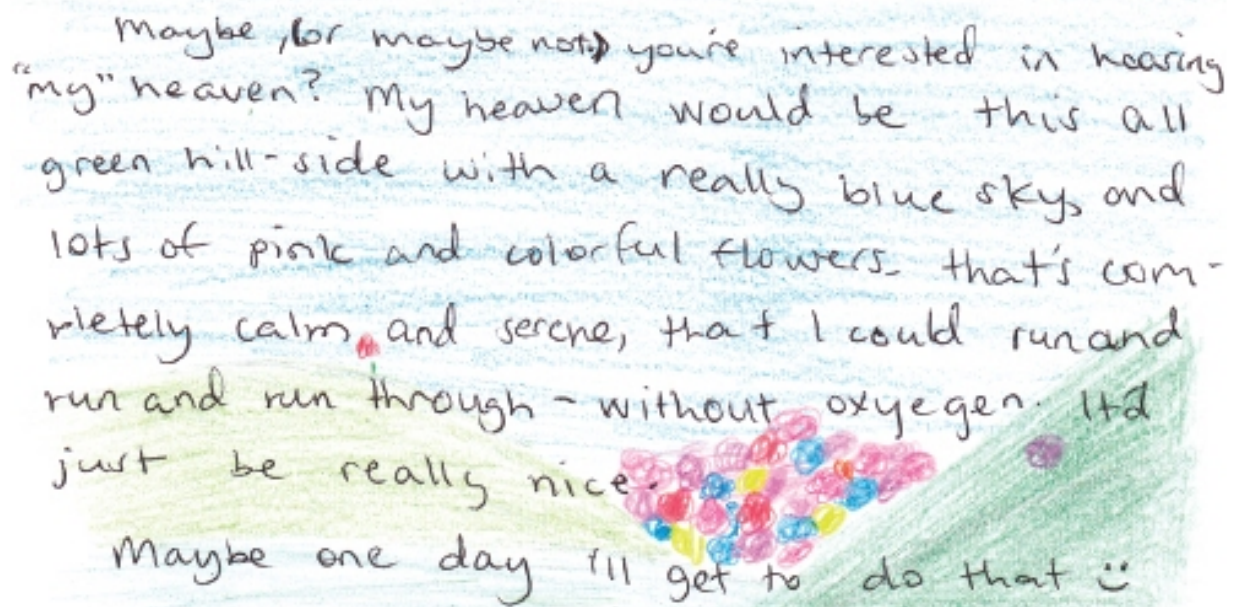 Maybe, (or maybe not) you're interested in hearing
"my" heaven? My heaven would be this all
green hill-side with a really blue sky, and
lots of pink and colorful flowers. that's com-
pletely calm and serene, that I could run and
run and run through - without oxyegen. It'd
just be really nice.
Maybe one day i'll get to do that :)